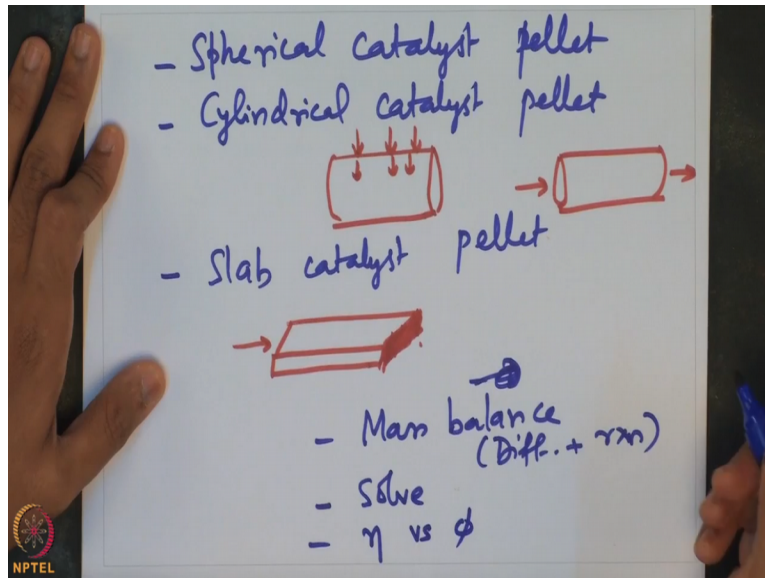 - Spherical catalyst pellet
- Cylindrical catalyst pellet
- Slab catalyst pellet
- Mass balance
(Diff. + rxn)
- Solve
- η vs φ
NPTEL